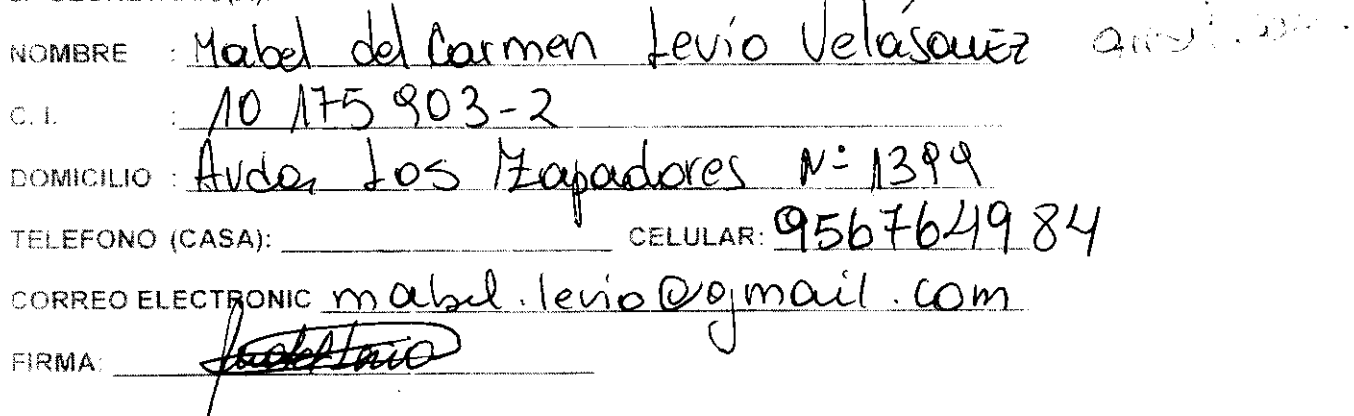 NOMBRE : Mabel del Carmen Levio Velásquez
C. I. : 10 175 903-2
DOMICILIO : Avda, Los Zapadores N° 1399
TELEFONO (CASA): CELULAR: 956764984
CORREO ELECTRONIC mabel.levio@gmail.com
FIRMA: